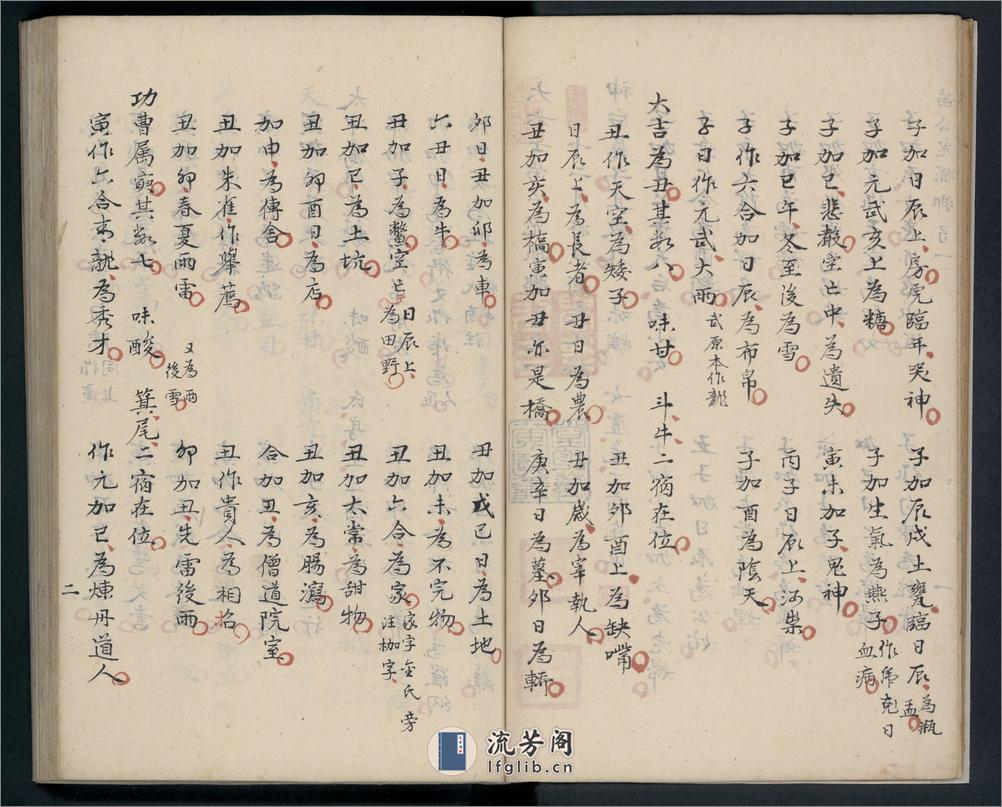 子加日辰上房虎臨年哭神　子加辰戌土甕臨日辰為瓶盂
子加元武亥上為糖　子加生氣為燕子作虎剋日血病
子加巳悲散空亡中為遺失　寅未加子鬼神
子加巳午冬至後為雪　丙子日辰上
子作六合加日辰為布帛　子加酉為陰天
子日作元武大雨武原本作龍
大吉為丑其數八　味甘　斗牛二宿在位
丑作天空為矮子　丑加卯酉上為缺嘴
日辰上為長者丑日為農　丑加歲為宰執人
丑加亥為橋寅加丑亦是橋　庚辛日為墓卯日為轎
卯日丑加卯為車　丑加戊己日為土地
六丑日為牛　丑加未為不完物
丑加子為鱉空亡日辰上為田野　丑加六合為冢冢字金氏旁注枷字
丑加巳為土坑　丑加太常為甜物
丑加卯酉日為店　丑加亥為腸瀉
加申為傳舍　合加丑為僧道院室
丑加朱雀作舉薦　丑作貴人為相名
丑加卯春夏雨雷又為雨後雪　卯加丑先雷後雨
功曹属寅其數七　味酸　箕尾二宿在位
寅作六合青龍為秀才　作元加巳為煉丹道人
二
流芳阁
lfglib.cn